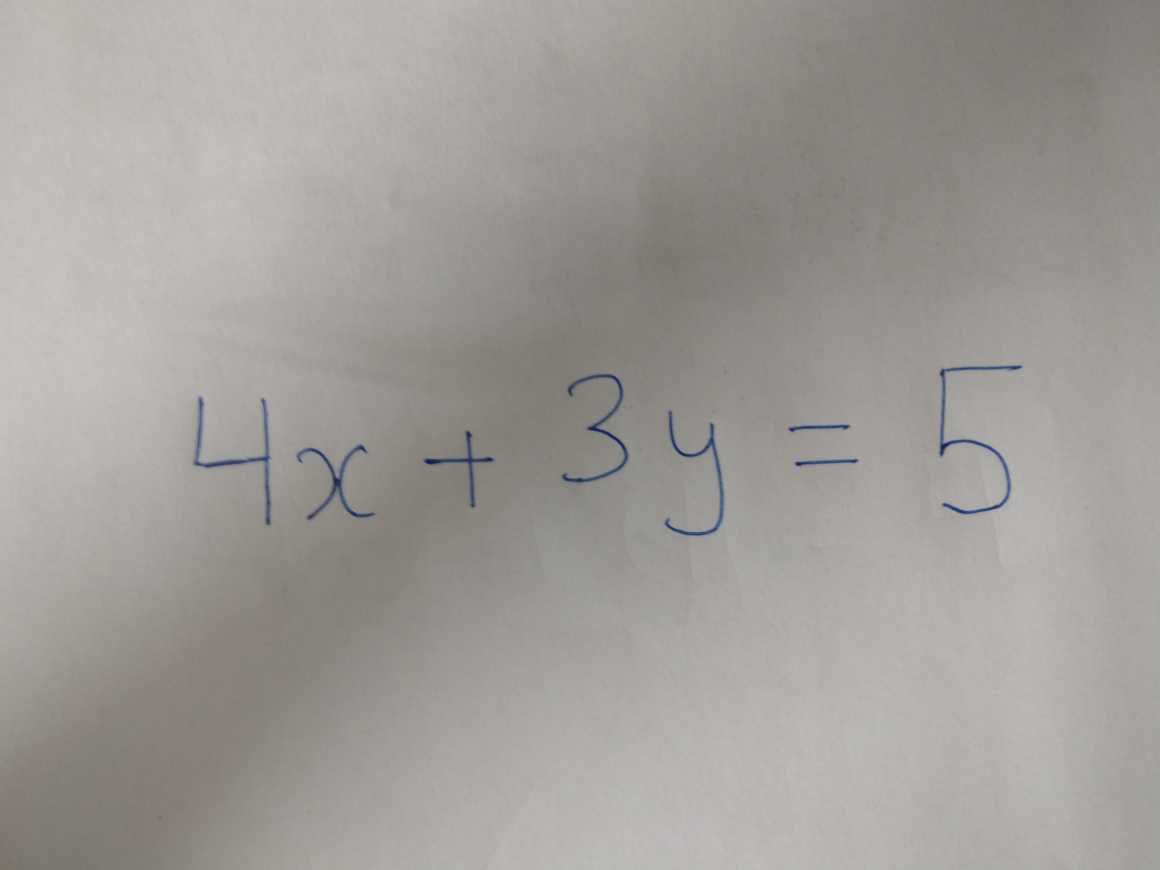 4x + 3y = 5